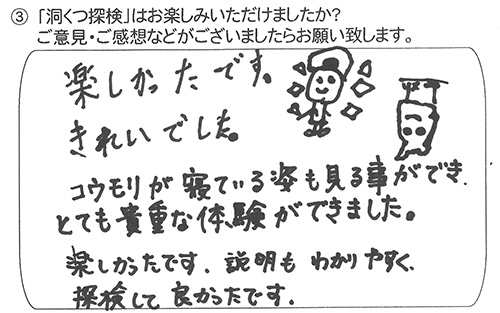 ③「洞くつ探検」はお楽しみいただけましたか?
ご意見・ご感想などがございましたらお願い致します。
楽しかったです。
きれいでした。
コウモリが寝ている姿も見る事ができ、
とても貴重な体験ができました。
楽しかったです。説明もわかりやすく、
探検して良かったです。